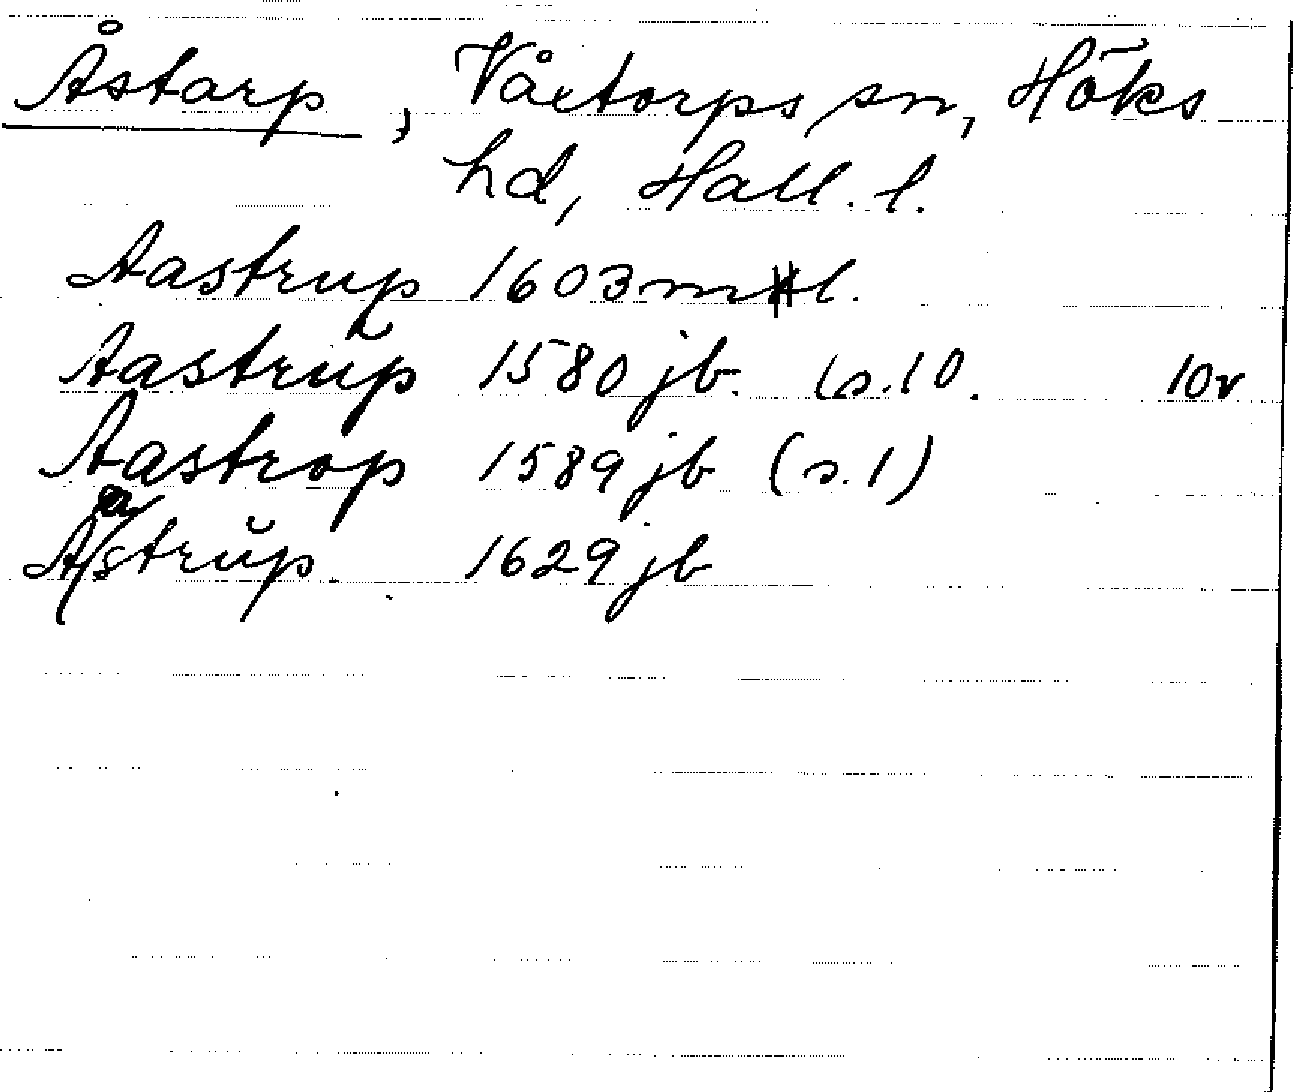 Åstarp, Våxtorps sn, Höks
hd, Hall. l.
Aastrup 1603 mtl.
Aastrŭp 1580 jb. (s. 10. 10v
Aastrop 1589 jb (s. 1)
Aastrŭp. 1629 jb